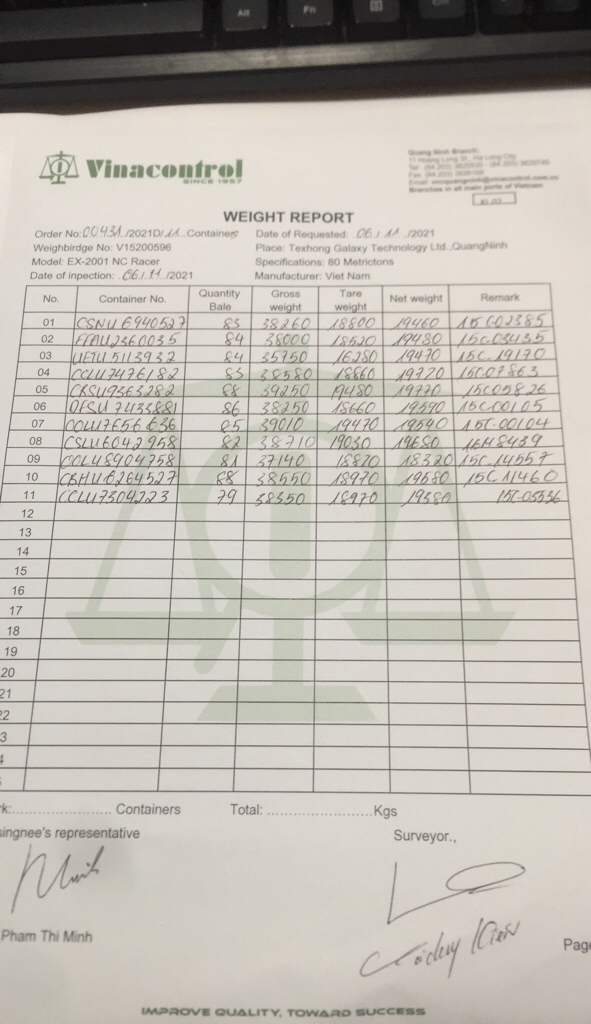 Alt
Fn
Vinacontrol
SINCE 1957
Quang Ninh Branch:
Branches in all main ports of Vietnam
WEIGHT REPORT
Order No: 00431 /2021D/11 Containers Date of Requested: 06 / 11 /2021
Weighbirdge No: V15200596 Place: Texhong Galaxy Technology Ltd.,QuangNinh
Model: EX-2001 NC Racer Specifications: 80 Metrictons
Date of inpection: 06 / 11 /2021 Manufacturer: Viet Nam
No. Container No. Quantity Bale Gross weight Tare weight Net weight Remark
01 CSNU6940527 85 38260 18800 19460 15C02385
02 FFAU2360035 84 38000 18520 19480 15C03435
03 UETU5113937 84 35750 16280 19470 15C.19170
04 CCLU7476182 83 38580 18860 19720 15C07863
05 CRSU9363282 88 39250 19480 19770 15C05826
06 OFSU7433881 86 38250 18660 19590 15C.00105
07 85 39010 19470 19540 15C-00104
08 CSLU6042958 82 38710 19030 19680 16H8439
09 81 37140 18820 18320 15C.14557
10 88 38550 18970 19580 15C11460
11 CCLU7304223 79 38350 18970 19380
12
13
14
15
16
17
18
19
20
21
22
3
4
k: Containers Total: Kgs
singnee's representative Surveyor.,
Pham Thi Minh
Page
IMPROVE QUALITY, TOWARD SUCCESS